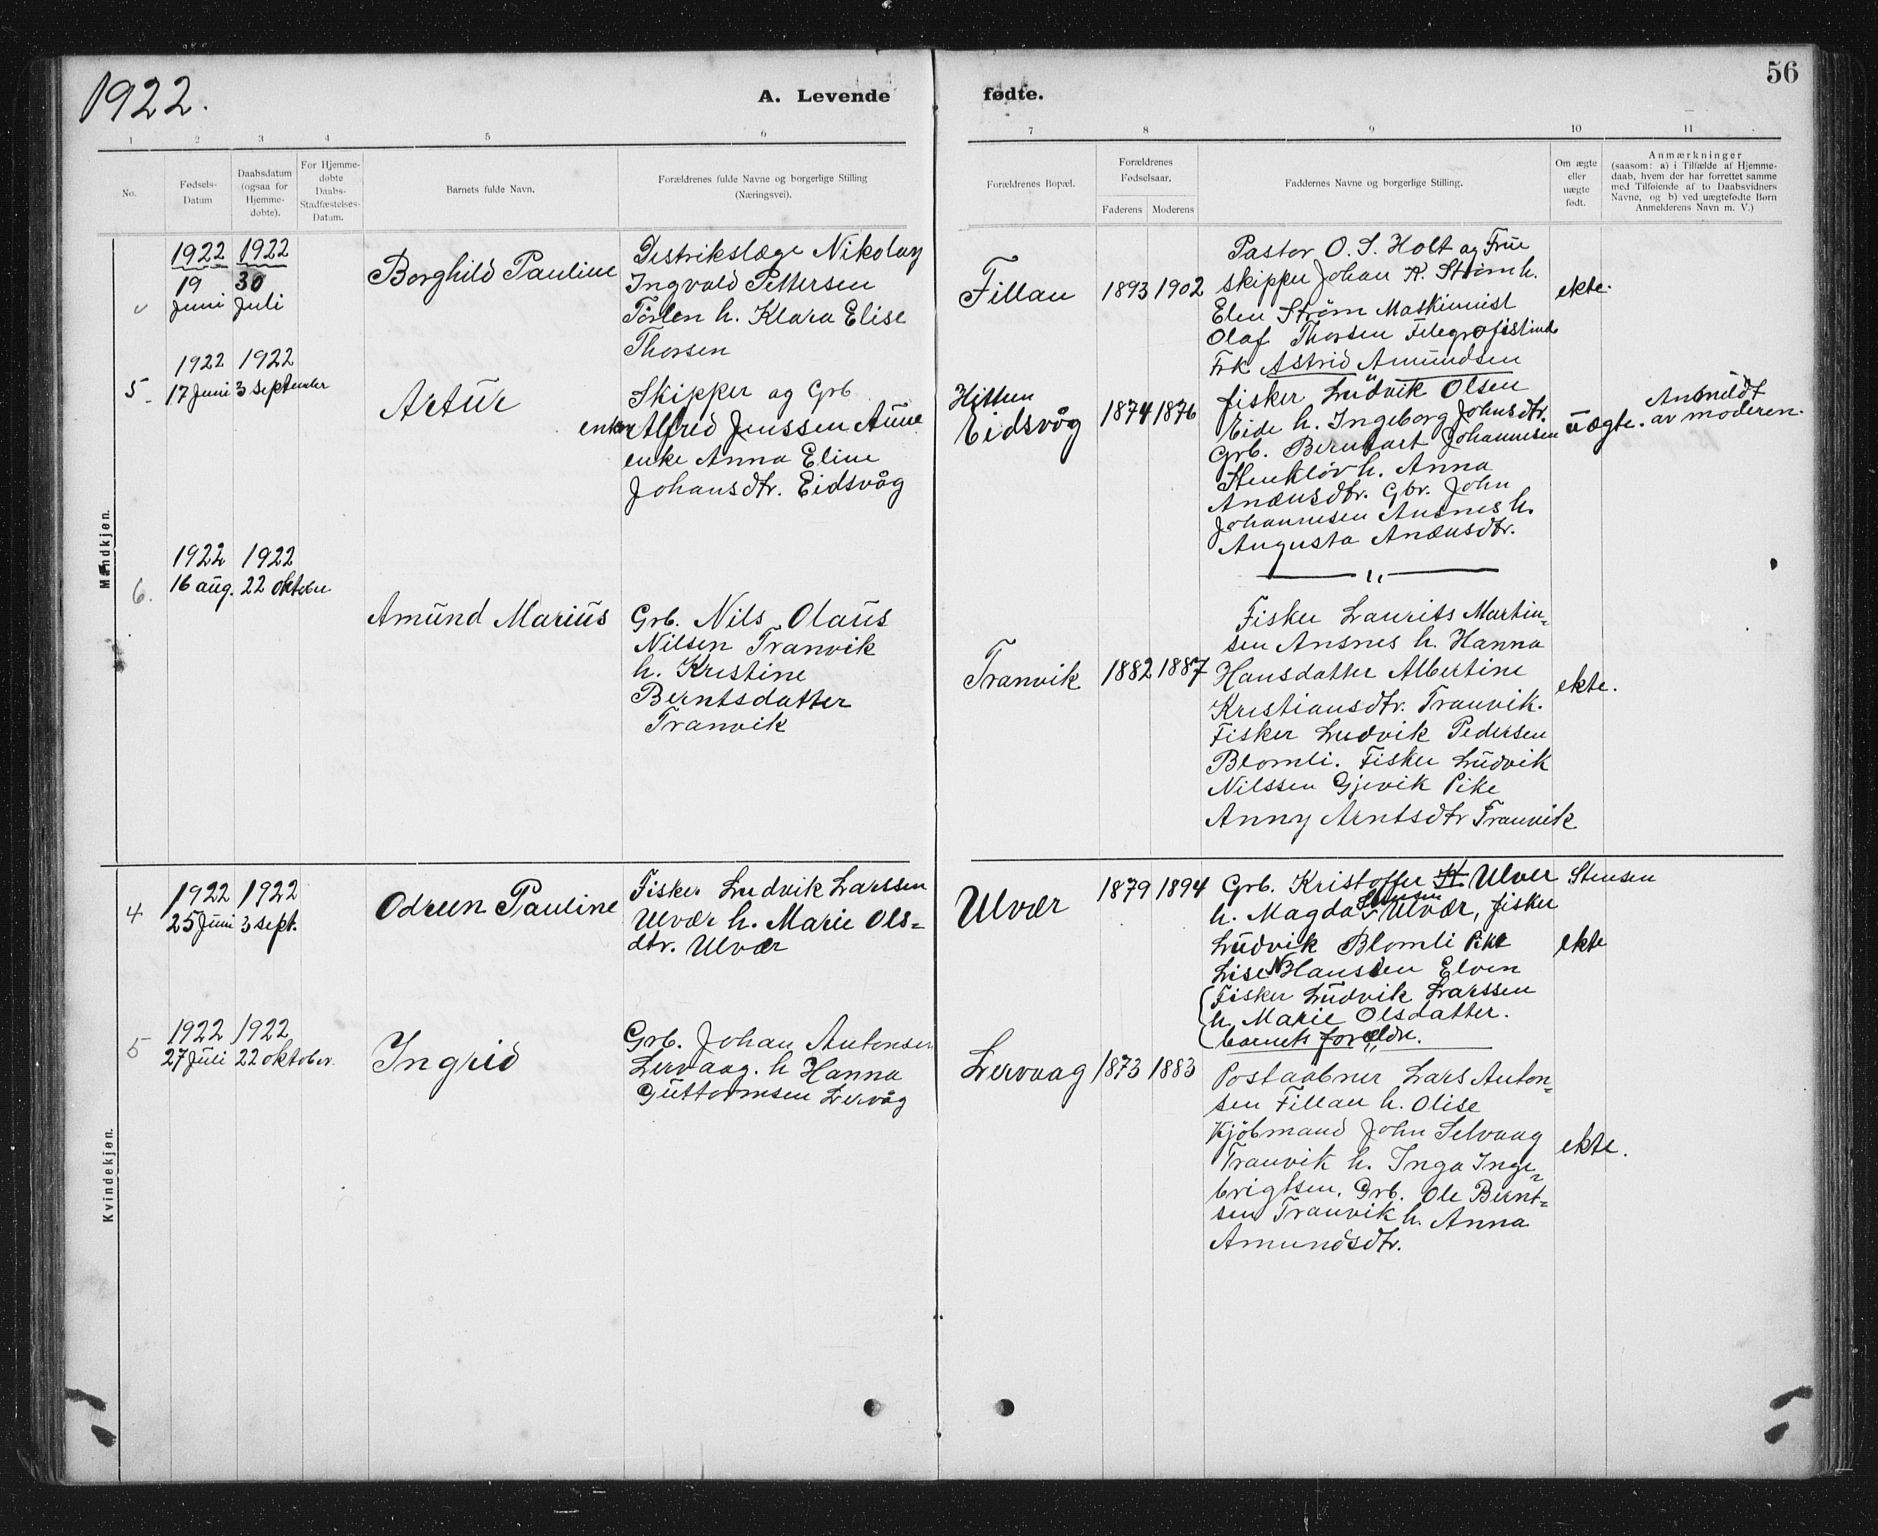 1922.
A. Levende
fødte.
56
1 2 3 4 5 6 7 8 9 10 11
No.
Fødsels-
Datum
Daabsdatum
(ogsaa for
Hjemme-
døbte).
For Hjemme-
døbte
Daabs-
Stadfæstelses-
Datum.
Barnets fulde Navn.
Forældrenes fulde Navne og borgerlige Stilling
(Næringsvei).
Forældrenes Bopæl.
Forældrenes
Fødselsaar.
Faderens Moderens
Faddernes Navne og borgerlige Stilling.
Om ægte
eller
uægte
født.
Anmærkninger
(saasom: a) i Tilfælde af Hjemme-
daab, hvem der har forrettet samme
med Tilføiende af to Daabsvidners
Navne, og b) ved uægtefødte Børn
Anmelderens Navn m. V.)
Mandkjøn.
1922 1922
19 30
Juni Juli
Borghild Pauline
Distrikslæge Nikolay
Ingvald Pettersen
h. Klara Elise
Thorsen
Fillan
1893 1902
Pastor O. S. Holt og Frue
skipper Johan A. Strøm h.
Elen Strøm Maskinnist
Olaf Thorsen
Frk Astrid Amundsen
ekte.
5
1922 1922
17 Juni 3 september
Artur
Skipper og Grb
enkem Alfred Jenssen Aune
enke Anna Eline
Johansdtr. Eidsvåg
Hitten
Eidsvåg
1874 1876
fisker Ludvik Olsen
Eide h. Ingeborg Johnsdtr.
Grb. Bernhart Johannesen
Stenkløv h. Anna
Anæusdtr. Gbr. John
Johannesen Ansnes h.
Augusta Anæusdtr.
uægte.
Anmeldt
av moderen.
6.
1922 1922
16 aug. 22 oktober
Amund Marius
Grb. Nils Olaus
Nilsen Tranvik
h. Kristine
Berntsdatter
Tranvik
Tranvik
1882 1887
Fisker Laurits Martin-
sen Ansnes h. Hanna
Hansdatter Albertine
Kristiansdtr. Tranvik.
Fisker Ludvik Pedersen
Blomli. Fisker Ludvik
Nilssen Gjevik Pike
Anny Arntsdtr Tranvik
ekte.
Kvindekjøn.
4
1922 1922
25 Juni 3 sept.
Odrun Pauline
Fisker Ludvik Larssen
Ulvær h. Marie Ols-
dtr. Ulvær
Ulvær
1879 1894
Grb. Kristoffer Ulver Stensen
h. Magda Stensen Ulvær, fisker
Ludvik Blomli Pike
Lise N Hansen Elven
Fisker Ludvik Larssen
h. Marie Olsdatter.
barnets forældre.
ekte
5
1922 1922
27 Juli 22 oktober.
Ingrid
Grb. Johan Antonsen
Lervaag. h Hanna
Guttormsen Lervåg
Lervaag
1873 1883
Postaabner Lars Anton-
sen Fillan h. Olise
Kjøbmand John Selvaag
Tranvik h. Inga Inge-
brigtsen. Grb. Ole Bernt-
sen Tranvik h. Anna
Amundsdtr.
ekte.